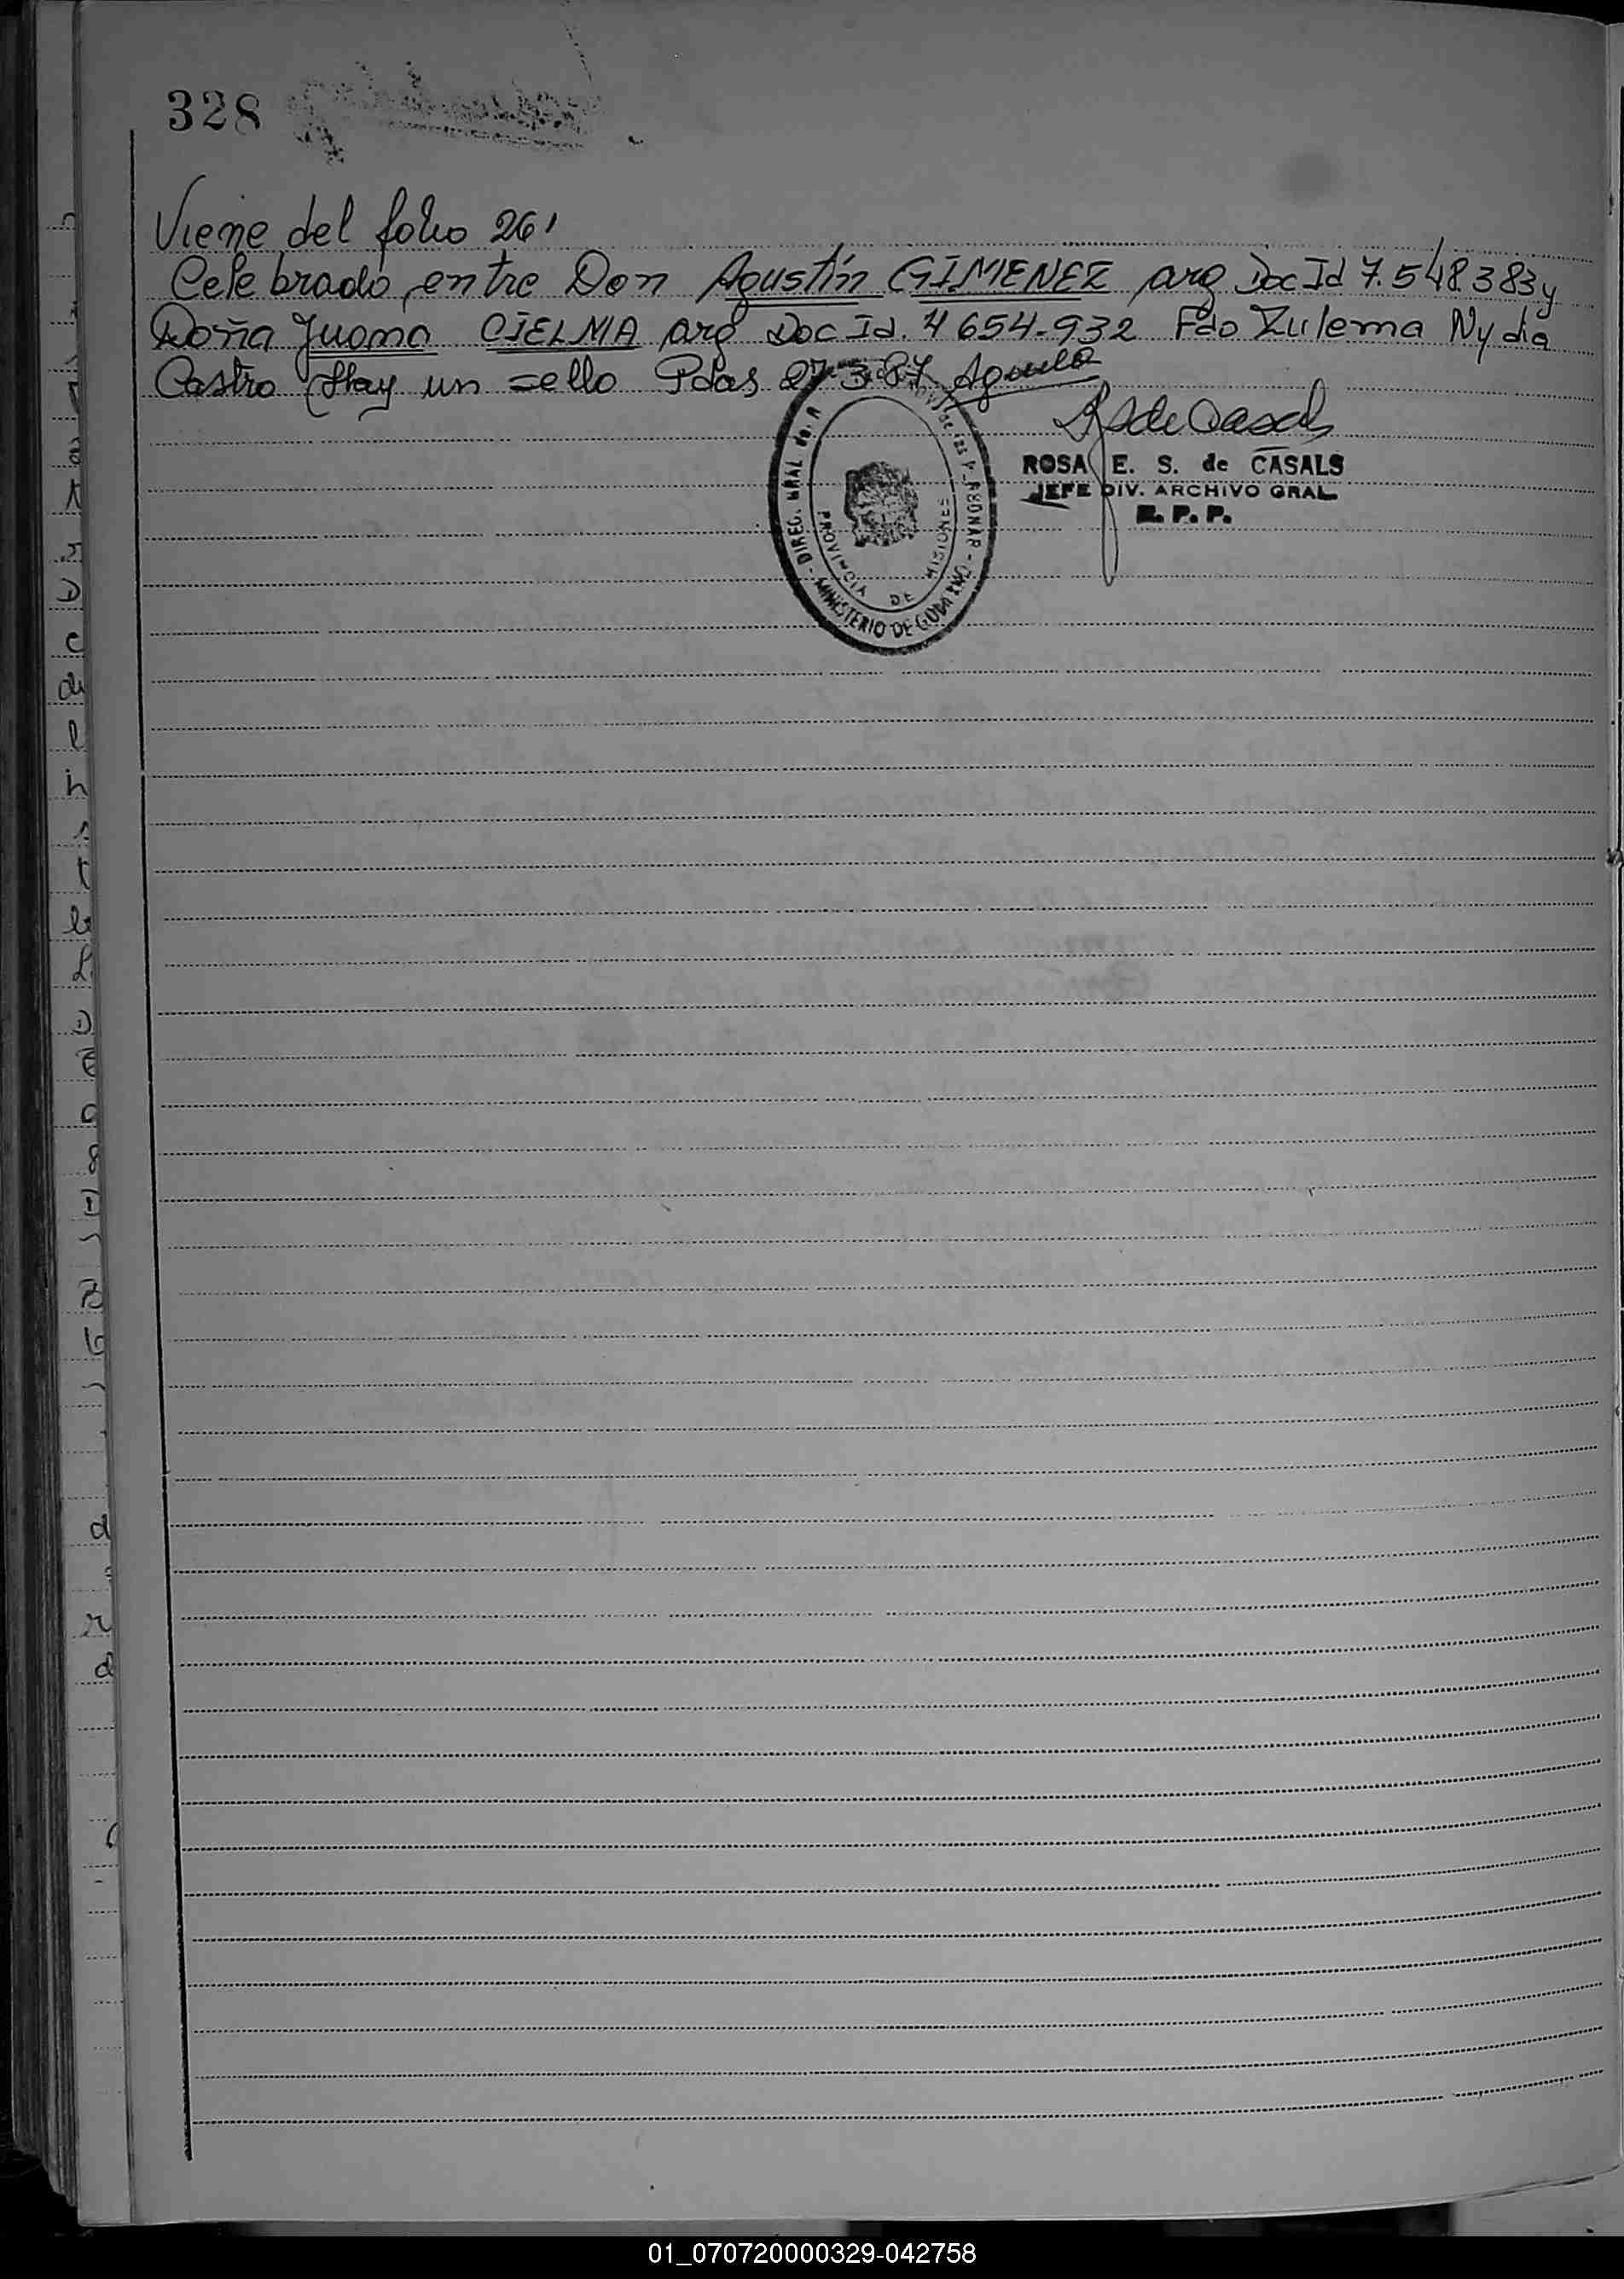 328
Viene del folio 261
Celebrado entre Don Agustín GIMENEZ arg Doc Id 7.548.383 y
Doña Juana CIELNIA arg Doc Id. 4 654-932 Fdo Zulema Nydia
Castro (Hay un sello Pdas 27-3-87
ROSA E. S. de CASALS
JEFE DIV. ARCHIVO GRAL
R. P. P.
DIREC. GRAL de
PROVINCIA DE MISIONES
MINISTERIO DE GOBIERNO
01_070720000329-042758